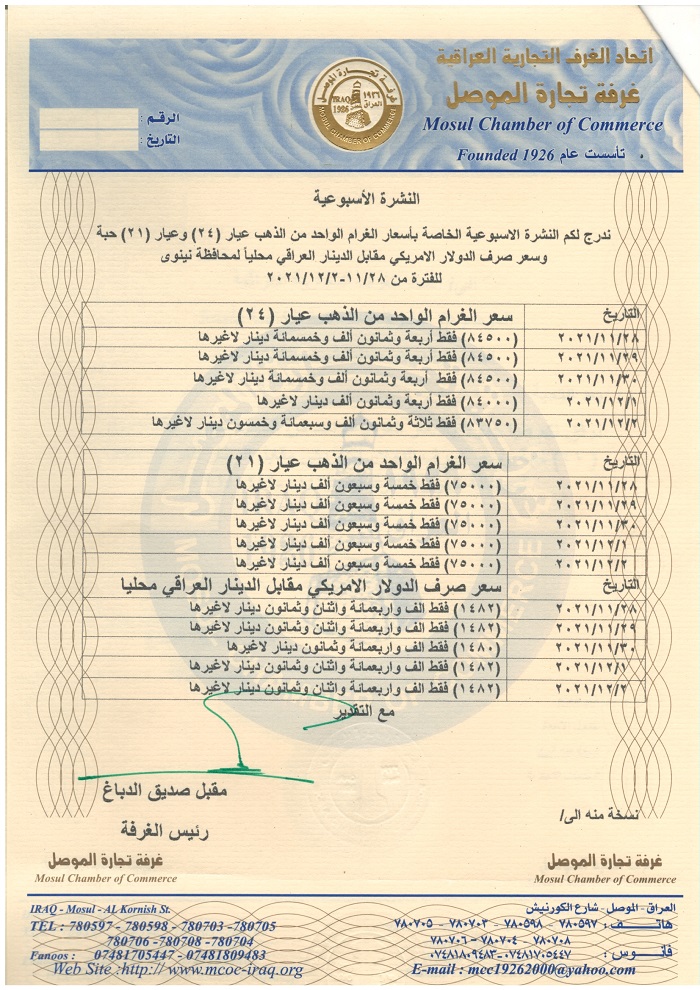 اتحاد الغرف التجارية العراقية
غرفة تجارة الموصل
Mosul Chamber of Commerce
تأسست عام Founded 1926
غرفة تجارة الموصل
IRAQ 1926
١٩٢٦ العراق
MOSUL CHAMBER OF COMMERCE
الرقم :
التاريخ :
النشرة الأسبوعية
ندرج لكم النشرة الاسبوعية الخاصة بأسعار الغرام الواحد من الذهب عيار (٢٤) وعيار (٢١) حبة
وسعر صرف الدولار الامريكي مقابل الدينار العراقي محلياً لمحافظة نينوى
للفترة من ١١/٢٨-٢٠٢١/١٢/٢
التاريخ سعر الغرام الواحد من الذهب عيار (٢٤)
٢٠٢١/١١/٢٨ (٨٤٥٠٠) فقط أربعة وثمانون ألف وخمسمائة دينار لاغيرها
٢٠٢١/١١/٢٩ (٨٤٥٠٠) فقط أربعة وثمانون ألف وخمسمائة دينار لاغيرها
٢٠٢١/١١/٣٠ (٨٤٥٠٠) فقط أربعة وثمانون ألف وخمسمائة دينار لاغيرها
٢٠٢١/١٢/١ (٨٤٠٠٠) فقط أربعة وثمانون ألف دينار لاغيرها
٢٠٢١/١٢/٢ (٨٣٧٥٠) فقط ثلاثة وثمانون ألف وسبعمائة وخمسون دينار لاغيرها
التاريخ سعر الغرام الواحد من الذهب عيار (٢١)
٢٠٢١/١١/٢٨ (٧٥٠٠٠) فقط خمسة وسبعون ألف دينار لاغيرها
٢٠٢١/١١/٢٩ (٧٥٠٠٠) فقط خمسة وسبعون ألف دينار لاغيرها
٢٠٢١/١١/٣٠ (٧٥٠٠٠) فقط خمسة وسبعون ألف دينار لاغيرها
٢٠٢١/١٢/١ (٧٥٠٠٠) فقط خمسة وسبعون ألف دينار لاغيرها
٢٠٢١/١٢/٢ (٧٥٠٠٠) فقط خمسة وسبعون ألف دينار لاغيرها
التاريخ سعر صرف الدولار الامريكي مقابل الدينار العراقي محليا
٢٠٢١/١١/٢٨ (١٤٨٢) فقط الف واربعمائة واثنان وثمانون دينار لاغيرها
٢٠٢١/١١/٢٩ (١٤٨٢) فقط الف واربعمائة واثنان وثمانون دينار لاغيرها
٢٠٢١/١١/٣٠ (١٤٨٠) فقط الف واربعمائة وثمانون دينار لاغيرها
٢٠٢١/١٢/١ (١٤٨٢) فقط الف واربعمائة واثنان وثمانون دينار لاغيرها
٢٠٢١/١٢/٢ (١٤٨٢) فقط الف واربعمائة واثنان وثمانون دينار لاغيرها
مع التقدير
مقبل صديق الدباغ
رئيس الغرفة
نسخة منه الى/
غرفة تجارة الموصل
Mosul Chamber of Commerce
غرفة تجارة الموصل
Mosul Chamber of Commerce
العراق- الموصل- شارع الكورنيش
هاتف : ٧٨٠٥٩٧ - ٧٨٠٥٩٨ - ٧٨٠٧٠٣ - ٧٨٠٧٠٥
٧٨٠٧٠٨ - ٧٨٠٧٠٤ - ٧٨٠٧٠٦
فانوس : ٠٧٤٨١٧٠٥٤٤٧-٠٧٤٨١٨٠٩٤٨٣
E-mail : mcc19262000@yahoo.com
IRAQ - Mosul - AL Kornish St.
TEL : 780597 - 780598 - 780703 -780705
780706 -780708 -780704
Fanoos : 07481705447 - 07481809483
Web Site :http:// www.mcoc-iraq.org